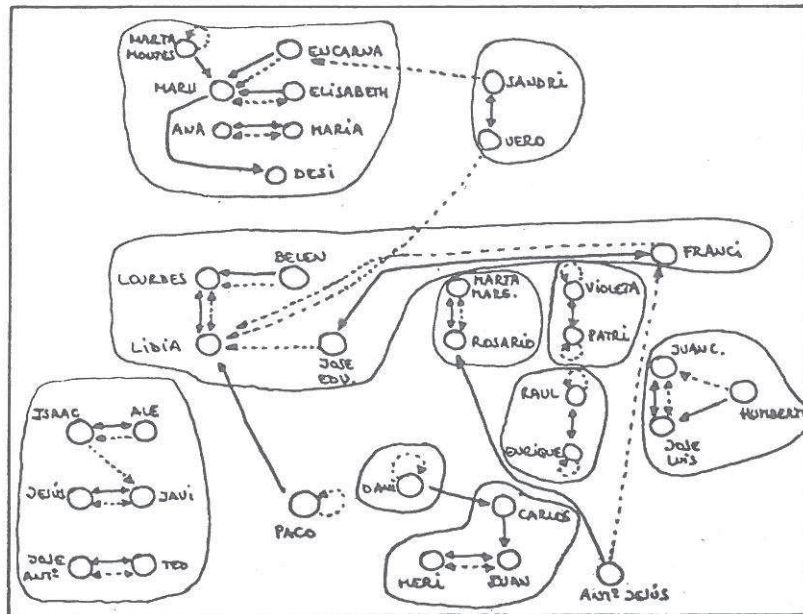 MARTA
MONTES
ENCARNA
MARU
ELISABETH
ANA
MARÍA
DESI
SANDRI
VERO
FRANCI
BELEN
LOURDES
LIDIA
JOSE
EDU.
MARTA
MARG.
ROSARIO
VIOLETA
PATRI
JUAN C.
HUMBERTO
JOSE
LUIS
RAUL
ENRIQUE
ISAAC
ALE
JESÚS
JAVI
JOSE
ANTº
TEO
PACO
DANI
CARLOS
MERI
JUAN
ANTº JESÚS